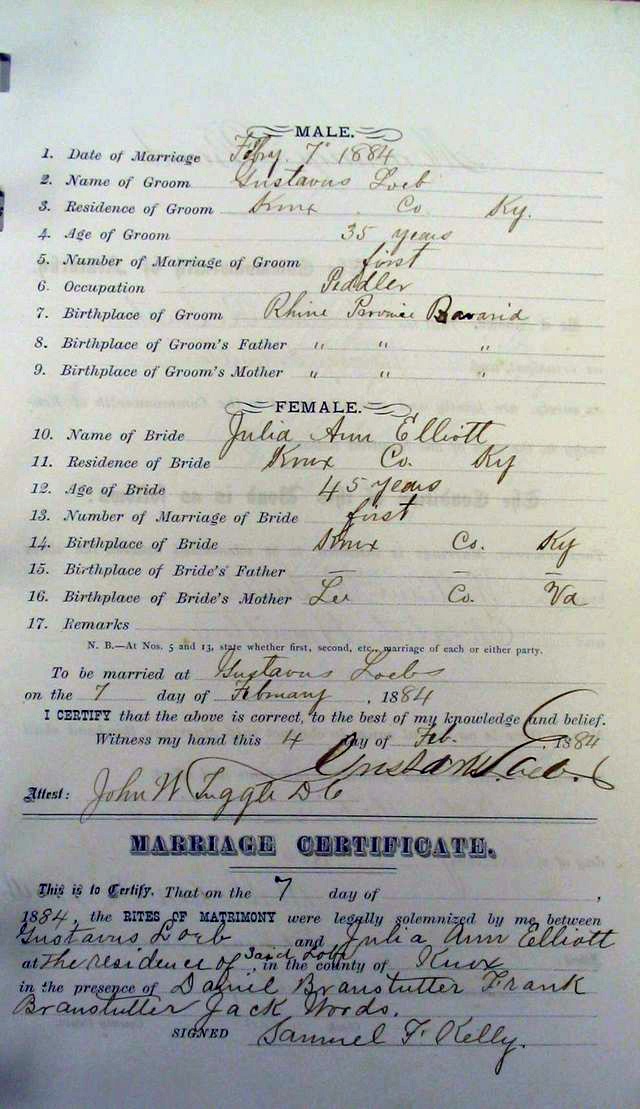 MALE.
1. Date of Marriage Feby. 7" 1884
2. Name of Groom Gustavus Loeb
3. Residence of Groom Knox Co Ky.
4. Age of Groom 35 years
5. Number of Marriage of Groom first
6. Occupation Peddler
7. Birthplace of Groom Rhine Bavaria
8. Birthplace of Groom's Father " " "
9. Birthplace of Groom's Mother " " "
FEMALE.
10. Name of Bride Julia Ann Elliott
11. Residence of Bride Knox Co. Ky
12. Age of Bride 45 years
13. Number of Marriage of Bride first
14. Birthplace of Bride Knox Co. Ky
15. Birthplace of Bride's Father — — —
16. Birthplace of Bride's Mother Lee Co. Va
17. Remarks
N. B.—At Nos. 5 and 13, state whether first, second, etc., marriage of each or either party.
To be married at Gustavus Loebs
on the 7 day of February, 1884
I CERTIFY that the above is correct, to the best of my knowledge and belief.
Witness my hand this 4 day of Feb., 1884
Gustavus Loeb.
Attest: John W Tuggle D C
MARRIAGE CERTIFICATE.
This is to Certify, That on the 7 day of ,
1884, the RITES OF MATRIMONY were legally solemnized by me between
Gustavus Loeb and Julia Ann Elliott
at The residence of Said Loeb, in the county of Knox
in the presence of Daniel Branstutter Frank
Branstutter Jack Woods.
SIGNED Samuel F. Kelly.